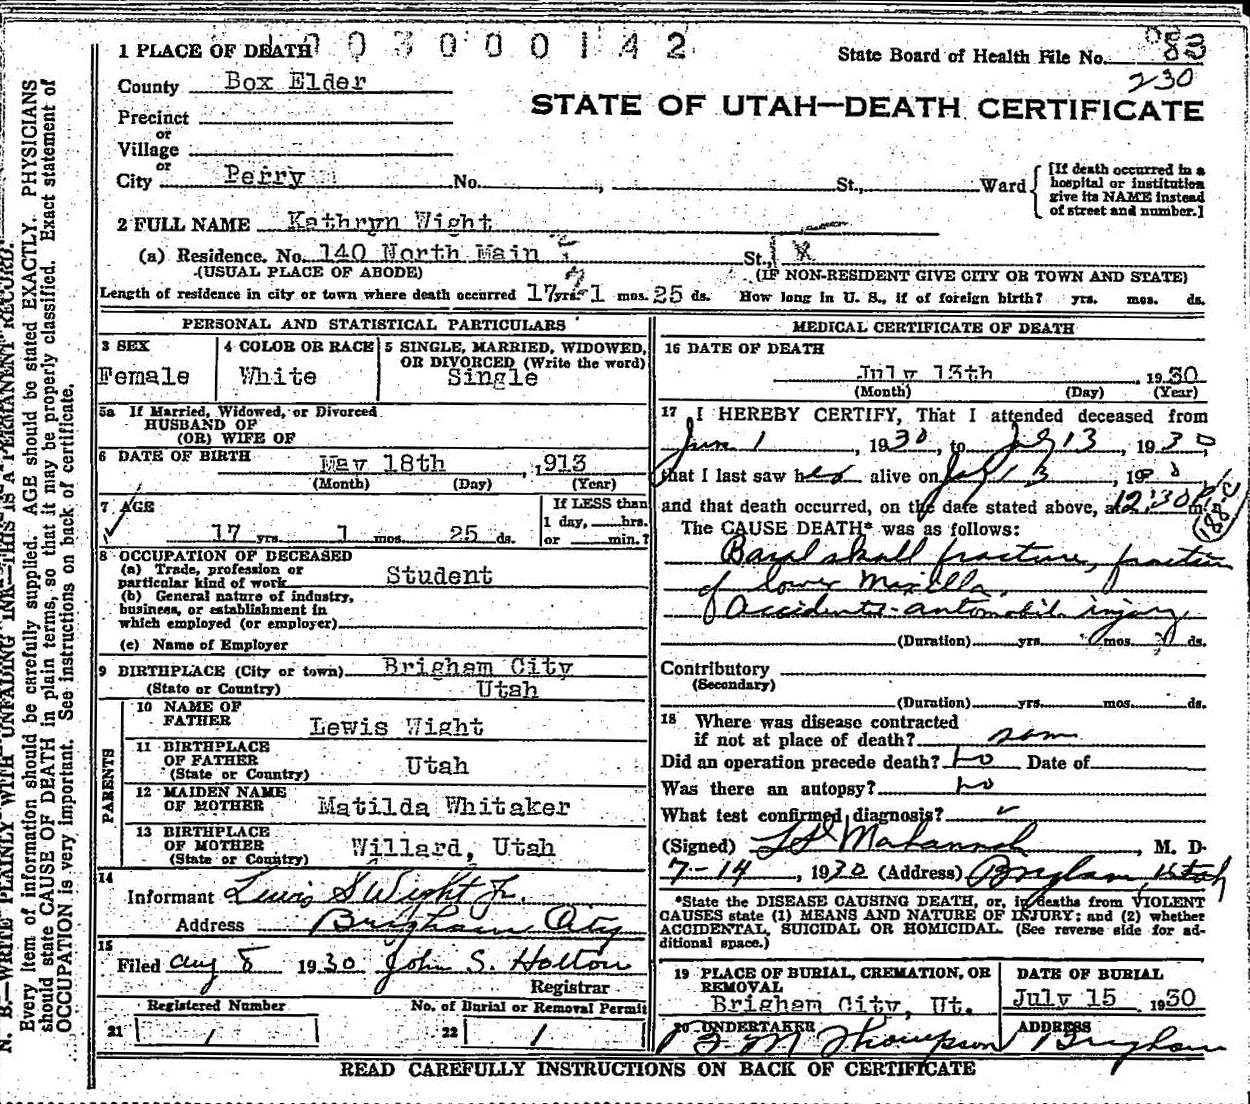 1 PLACE OF DEATH 1 0 0 3 0 0 0 1 4 2
State Board of Health File No. 83
230
County Box Elder
STATE OF UTAH—DEATH CERTIFICATE
Precinct
or
Village
or
City Perry No. , St., Ward
[If death occurred in a hospital or institution give its NAME instead of street and number.]
2 FULL NAME Kathryn Wight
(a) Residence. No. 140 North Main St.,
(USUAL PLACE OF ABODE) (IF NON-RESIDENT GIVE CITY OR TOWN AND STATE)
Length of residence in city or town where death occurred 17 yrs. 1 mos. 25 ds. How long in U. S., if of foreign birth? yrs. mos. ds.
PERSONAL AND STATISTICAL PARTICULARS
3 SEX
Female
4 COLOR OR RACE
White
5 SINGLE, MARRIED, WIDOWED, OR DIVORCED (Write the word)
Single
5a If Married, Widowed, or Divorced
HUSBAND OF
(OR) WIFE OF
6 DATE OF BIRTH May 18th , 1913
(Month) (Day) (Year)
7 AGE
17 yrs. 1 mos. 25 ds.
If LESS than
1 day, hrs.
or min.?
8 OCCUPATION OF DECEASED
(a) Trade, profession or
particular kind of work Student
(b) General nature of industry,
business, or establishment in
which employed (or employer)
(c) Name of Employer
9 BIRTHPLACE (City or town) Brigham City
(State or Country) Utah
PARENTS
10 NAME OF
FATHER Lewis Wight
11 BIRTHPLACE
OF FATHER
(State or Country) Utah
12 MAIDEN NAME
OF MOTHER Matilda Whitaker
13 BIRTHPLACE
OF MOTHER
(State or Country) Willard, Utah
14
Informant Lewis S Wight Jr.
Address Brigham City
15
Filed Aug 8 1930 John S. Holton
Registrar
Registered Number No. of Burial or Removal Permit
21 1 22 1
MEDICAL CERTIFICATE OF DEATH
16 DATE OF DEATH
July 13th , 1930
(Month) (Day) (Year)
17 I HEREBY CERTIFY, That I attended deceased from
Jun 1 1930, to July 13 1930,
that I last saw her alive on July 13 , 1930
and that death occurred, on the date stated above, at 12:30 P m.
188-c
The CAUSE DEATH* was as follows:
Basal skull fracture, fracture
of lower Maxilla,
Accident-automobile injury
(Duration) yrs. mos. ds.
Contributory
(Secondary)
(Duration) yrs. mos. ds.
18 Where was disease contracted
if not at place of death? same
Did an operation precede death? no Date of
Was there an autopsy? no
What test confirmed diagnosis? ✓
(Signed) , M. D.
7-14 , 1930 (Address) Brigham, Utah
*State the DISEASE CAUSING DEATH, or, in deaths from VIOLENT
CAUSES state (1) MEANS AND NATURE OF INJURY; and (2) whether
ACCIDENTAL, SUICIDAL OR HOMICIDAL. (See reverse side for ad-
ditional space.)
19 PLACE OF BURIAL, CREMATION, OR
REMOVAL
Brigham City, Ut.
DATE OF BURIAL
July 15 1930
20 UNDERTAKER
Thompson
ADDRESS
Brigham
READ CAREFULLY INSTRUCTIONS ON BACK OF CERTIFICATE
N. B.—WRITE PLAINLY WITH UNFADING INK—THIS IS A PERMANENT RECORD.
Every item of information should be carefully supplied. AGE should be stated EXACTLY. PHYSICIANS
should state CAUSE OF DEATH in plain terms, so that it may be properly classified. Exact statement of
OCCUPATION is very important. See instructions on back of certificate.